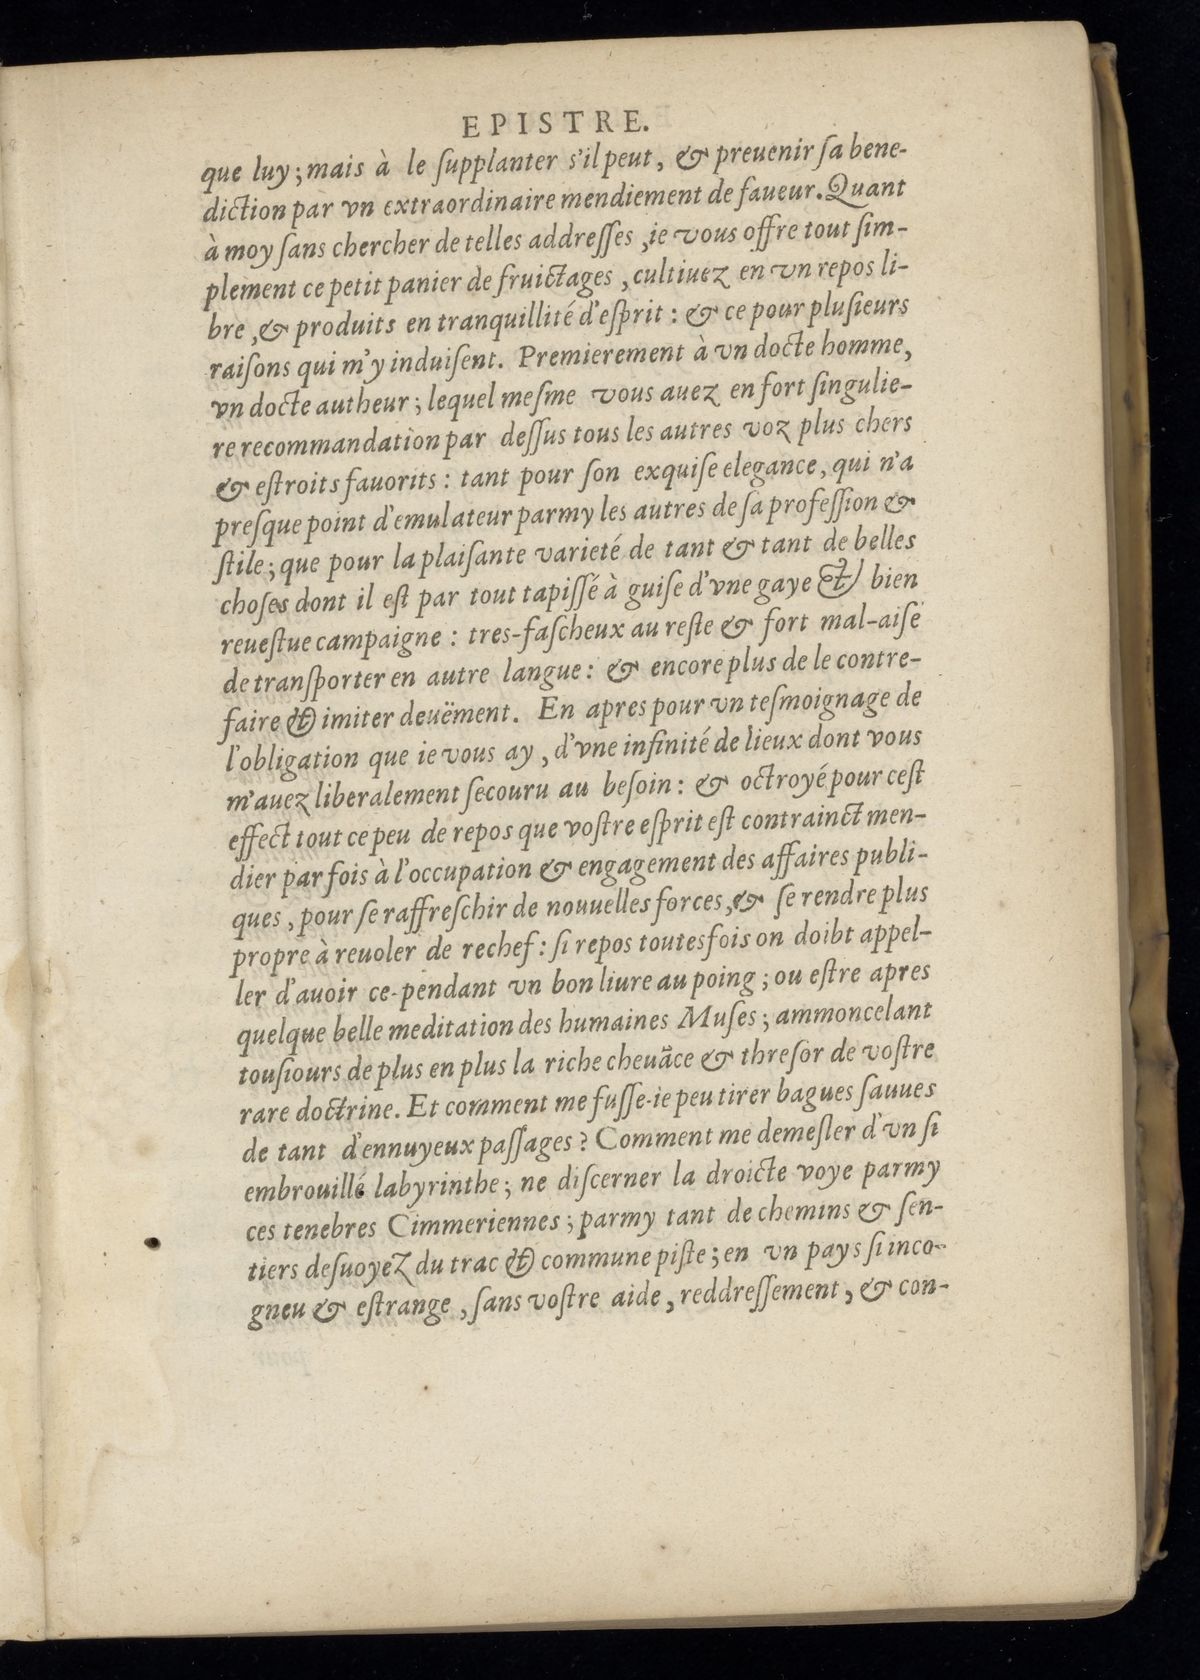 EPISTRE.
que luy; mais à le ſupplanter s'il peut, & preuenir ſa bene-
diction par vn extraordinaire mendiement de faueur. Quant
à moy ſans chercher de telles addreſſes, ie vous offre tout ſim-
plement ce petit panier de fruictages, cultiuez en vn repos li-
bre, & produits en tranquillité d'eſprit: & ce pour pluſieurs
raiſons qui m'y induiſent. Premierement à vn docte homme,
vn docte autheur; lequel meſme vous auez en fort ſingulie-
re recommandation par deſſus tous les autres voz plus chers
& eſtroits fauorits: tant pour ſon exquiſe elegance, qui n'a
preſque point d'emulateur parmy les autres de ſa profeſſion &
ſtile; que pour la plaiſante varieté de tant & tant de belles
choſes dont il eſt par tout tapiſſé à guiſe d'vne gaye & bien
reueſtue campaigne: tres-faſcheux au reſte & fort mal-aiſé
de tranſporter en autre langue: & encore plus de le contre-
faire & imiter deuëment. En apres pour vn teſmoignage de
l'obligation que ie vous ay, d'vne infinité de lieux dont vous
m'auez liberalement ſecouru au beſoin: & octroyé pour ceſt
effect tout ce peu de repos que voſtre eſprit eſt contrainct men-
dier par fois à l'occupation & engagement des affaires publi-
ques, pour ſe raffreſchir de nouuelles forces, & ſe rendre plus
propre à reuoler de rechef: ſi repos toutesfois on doibt appel-
ler d'auoir ce-pendant vn bon liure au poing; ou eſtre apres
quelque belle meditation des humaines Muſes; ammoncelant
touſiours de plus en plus la riche cheuãce & threſor de voſtre
rare doctrine. Et comment me fuſſe-ie peu tirer bagues ſauues
de tant d'ennuyeux paſſages? Comment me demeſler d'vn ſi
embrouillé labyrinthe; ne diſcerner la droicte voye parmy
ces tenebres Cimmeriennes; parmy tant de chemins & ſen-
tiers deſuoyez du trac & commune piſte; en vn pays ſi inco-
gneu & eſtrange, ſans voſtre aide, reddreſſement, & con-